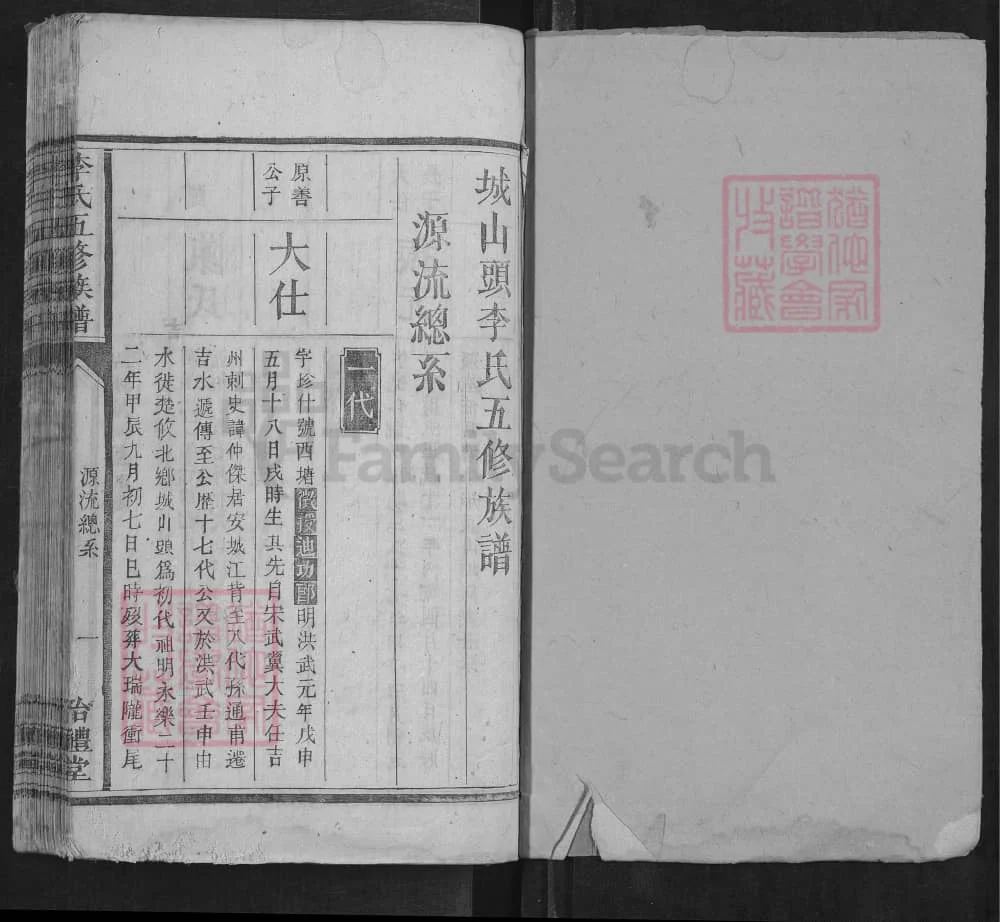 城山頭李氏五修族譜
源流總系
一代
原善
公子
大仕
字珍什號西塘徵授迪功郎明洪武元年戊申
五月十八日戌時生其先自宋武冀大夫仕吉
州刺史諱仲傑居安城江背至八代孫通甫遷
吉水遞傳至公歷十七代公又於洪武壬申由
水徙楚攸北鄉城山頭爲初代祖明永樂二十
二年甲辰九月初七日巳時歿葬大瑞隴衝尾
李氏五修族譜
源流總系
一
治禮堂
譜學會
收藏
FamilySearch